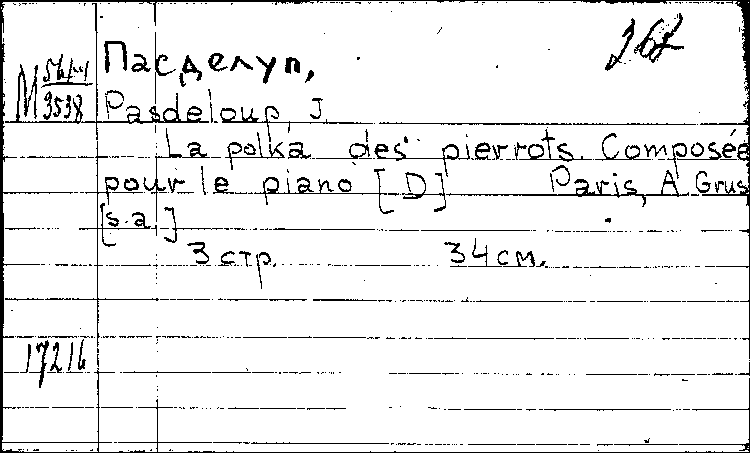 Пасделуп,
M 3538
Pasdeloup, J.
La polka des pierrots. Composée
pour le piano [D] Paris, A. Grus
[s.a.]
3 стр. 34 см.
17216